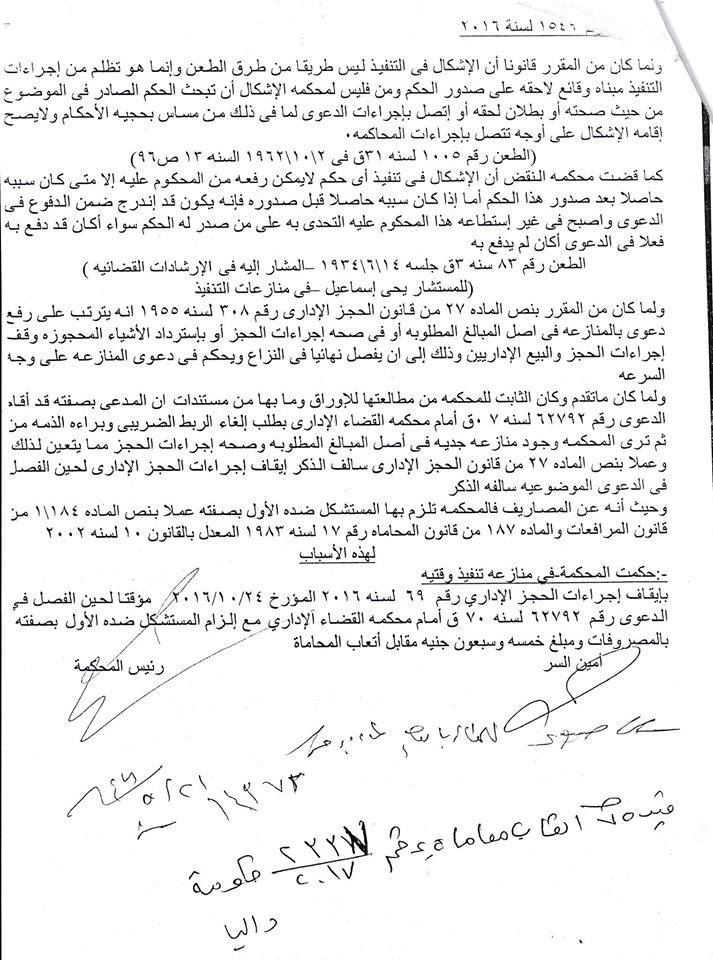 ١٥٤٦ لسنة ٢٠١٦
ولما كان من المقرر قانونا أن الإشكال فى التنفيذ ليس طريقا من طرق الطعن وإنما هو تظلم من إجراءات
التنفيذ مبناه وقائع لاحقه على صدور الحكم ومن فليس لمحكمه الإشكال أن تبحث الحكم الصادر فى الموضوع
من حيث صحته أو بطلان لحقه أو إتصل بإجراءات الدعوى لما فى ذلك من مساس بحجيه الأحكام ولايصح
إقامه الإشكال على أوجه تتصل بإجراءات المحاكمه.
(الطعن رقم ١٠٠٥ لسنه ٣١ق فى ٢\١٠\١٩٦٢ السنه ١٣ ص٩٦)
كما قضت محكمه النقض أن الإشكال فى تنفيذ أى حكم لايمكن رفعه من المحكوم عليه إلا متى كان سببه
حاصلا بعد صدور هذا الحكم أما إذا كان سببه حاصلا قبل صدوره فإنه يكون قد إندرج ضمن الدفوع فى
الدعوى واصبح فى غير إستطاعه هذا المحكوم عليه التحدى به على من صدر له الحكم سواء أكان قد دفع به
فعلا فى الدعوى أكان لم يدفع به
الطعن رقم ٨٣ سنه ٣ق جلسه ١٤\٦\١٩٣٤ –المشار إليه فى الإرشادات القضائيه )
(للمستشار يحى إسماعيل –فى منازعات التنفيذ
ولما كان من المقرر بنص الماده ٢٧ من قانون الحجز الإدارى رقم ٣٠٨ لسنه ١٩٥٥ انه يترتب على رفع
دعوى بالمنازعه فى اصل المبالغ المطلوبه أو فى صحه إجراءات الحجز أو بإسترداد الأشياء المحجوزه وقف
إجراءات الحجز والبيع الإداريين وذلك إلى ان يفصل نهائيا فى النزاع ويحكم فى دعوى المنازعه على وجه
السرعه
ولما كان ماتقدم وكان الثابت للمحكمه من مطالعتها للإوراق وما بها من مستندات ان المدعى بصفته قد أقام
الدعوى رقم ٦٢٧٩٢ لسنه ٠٧ق أمام محكمه القضاء الإدارى بطلب إلغاء الربط الضريبى وبراءه الذمه من
ثم ترى المحكمه وجود منازعه جديه فى أصل المبالغ المطلوبه وصحه إجراءات الحجز مما يتعين لذلك
وعملا بنص الماده ٢٧ من قانون الحجز الإدارى سالف الذكر إيقاف إجراءات الحجز الإدارى لحين الفصل
فى الدعوى الموضوعيه سالفه الذكر
وحيث أنه عن المصاريف فالمحكمه تلزم بها المستشكل ضده الأول بصفته عملا بنص الماده ١\١٨٤ من
قانون المرافعات والماده ١٨٧ من قانون المحاماه رقم ١٧ لسنه ١٩٨٣ المعدل بالقانون ١٠ لسنه ٢٠٠٢
لهذه الأسباب
:-حكمت المحكمة-في منازعه تنفيذ وقتيه
بإيقاف إجراءات الحجز الإداري رقم ٦٩ لسنه ٢٠١٦ المؤرخ ٢٠١٦/١٠/٢٤ مؤقتا لحين الفصل في
الدعوى رقم ٦٢٧٩٢ لسنه ٧٠ ق أمام محكمه القضاء الإداري مع إلزام المستشكل ضده الأول بصفته
بالمصروفات ومبلغ خمسه وسبعون جنيه مقابل أتعاب المحاماة
أمين السر رئيس المحكمة
٦٤٣٧٣
٥/٢١
اتعاب محاماة برقم ٢٠١٧ حكومة
داليا